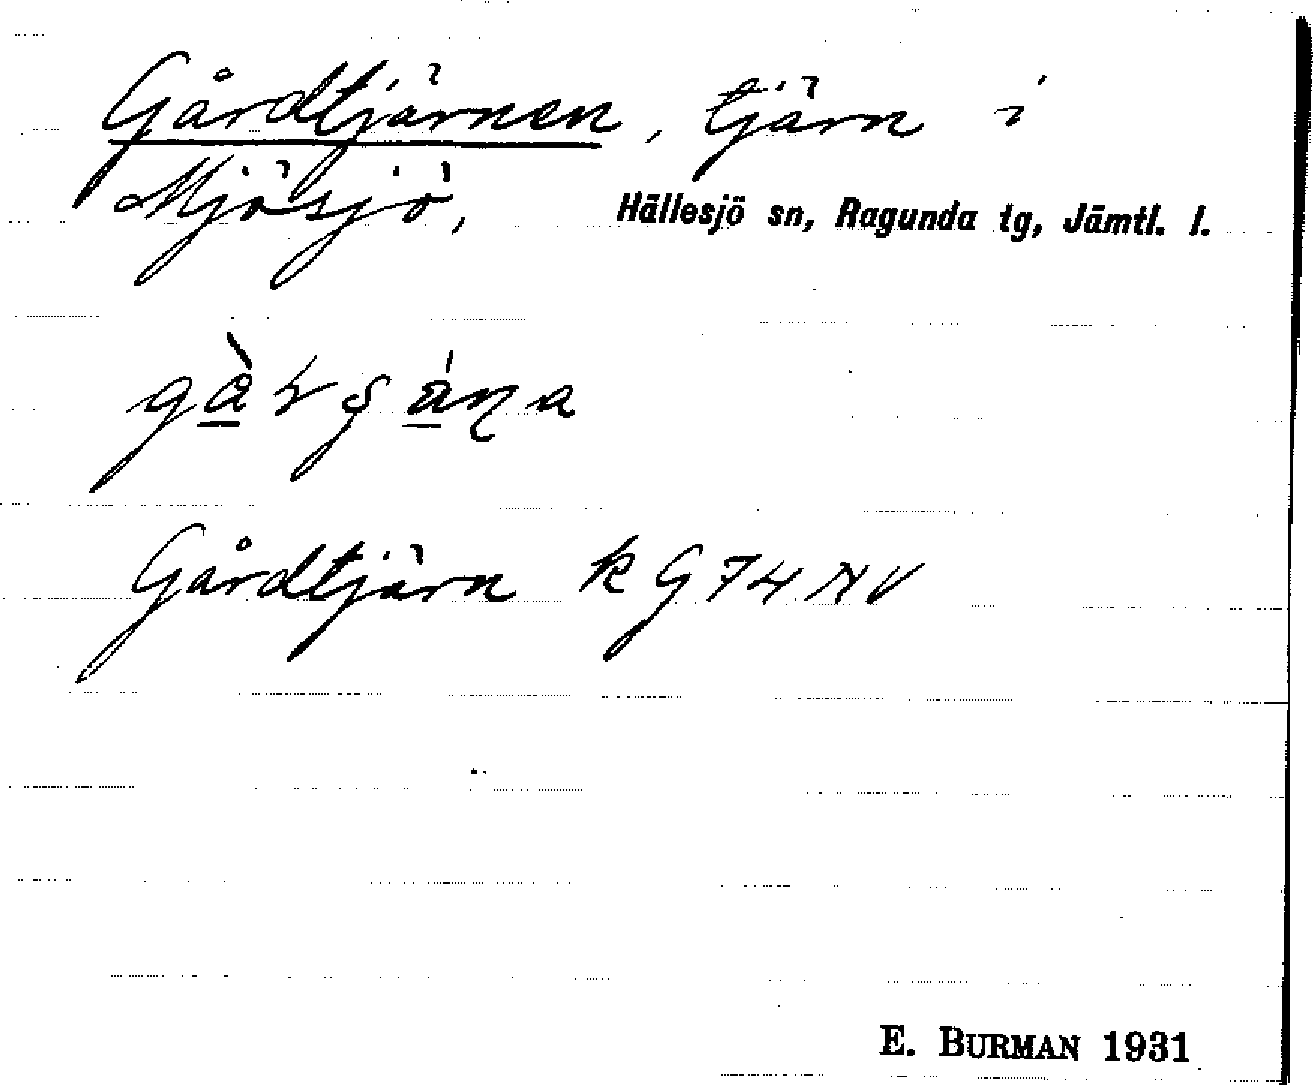 Gårdtjärnen, tjärn i
Mjösjö, Hällesjö sn, Ragunda tg, Jämtl. l.
Gårdtjärn k G 74 NV
E. BURMAN 1931